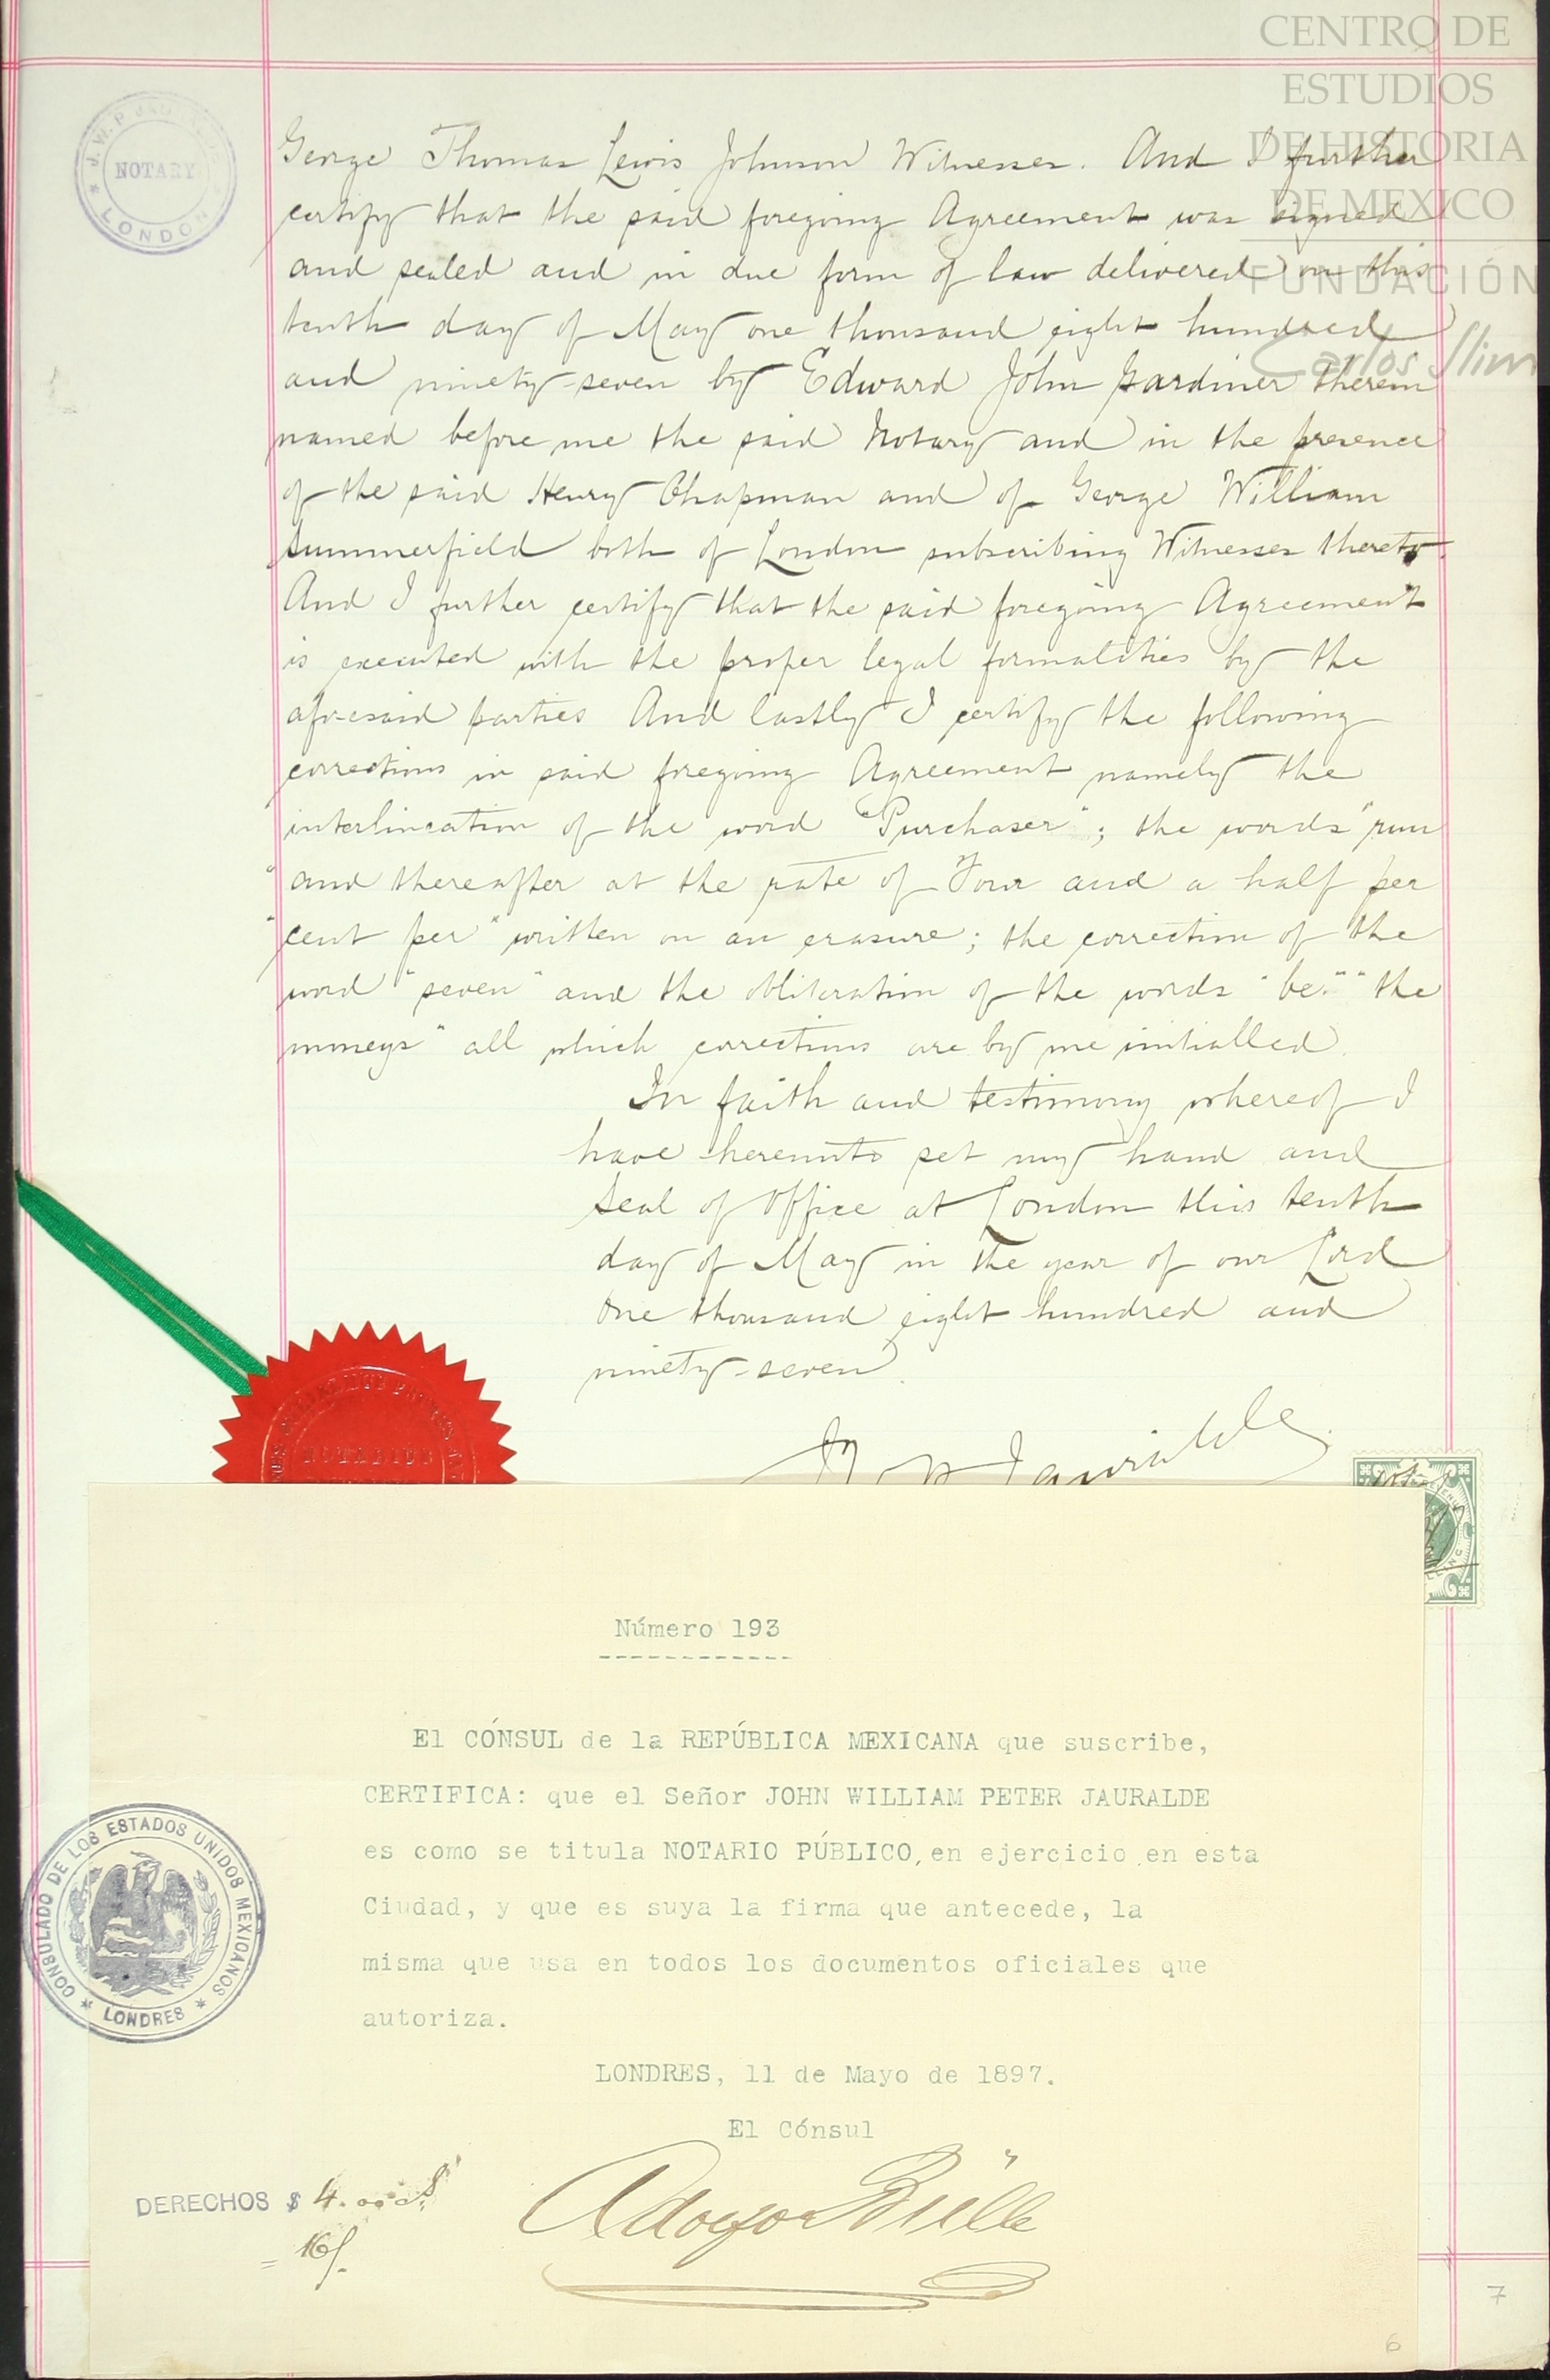 CENTRO DE
ESTUDIOS
DE HISTORIA
DE MEXICO
FUNDACIÓN
Carlos Slim
J. W. P.
NOTARY
LONDON
George Thomas Lewis Johnson Witnesses. And I further
certify that the said foregoing Agreement was signed
and sealed and in due form of law delivered on this
tenth day of May one thousand eight hundred
and ninety-seven by Edward John Gardiner therein
named before me the said Notary and in the presence
of the said Henry Chapman and of George William
Summerfield both of London subscribing Witnesses thereto.
And I further certify that the said foregoing Agreement
is executed with the proper legal formalities by the
aforesaid parties And lastly I certify the following
corrections in said foregoing Agreement namely the
interlineation of the word "Purchaser"; the words "run
"and thereafter at the rate of Four and a half per
"cent per" written on an erasure; the correction of the
word "seven" and the obliteration of the words "be" "the
moneys" all which corrections are by me initialled.
In faith and testimony whereof I
have hereunto set my hand and
Seal of Office at London this tenth
day of May in the year of our Lord
One thousand eight hundred and
ninety-seven.
Jauralde
Número 193
El CÓNSUL de la REPÚBLICA MEXICANA que suscribe,
CERTIFICA: que el Señor JOHN WILLIAM PETER JAURALDE
es como se titula NOTARIO PÚBLICO, en ejercicio en esta
Ciudad, y que es suya la firma que antecede, la
misma que usa en todos los documentos oficiales que
autoriza.
CONSULADO DE LOS ESTADOS UNIDOS MEXICANOS
LONDRES
LONDRES, 11 de Mayo de 1897.
El Cónsul
Adolfo Bülle
DERECHOS $ 4.00 cs
= 16/-
7
6